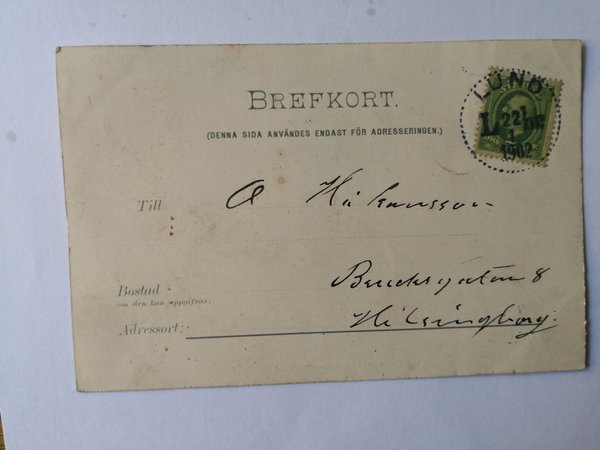 LUND
22 1
1902
BREFKORT.
(DENNA SIDA ANVÄNDES ENDAST FÖR ADRESSERINGEN.)
Till
A Håkansson
Bostad
om den kan uppgifvas:
8
Adressort:
Helsingborg.